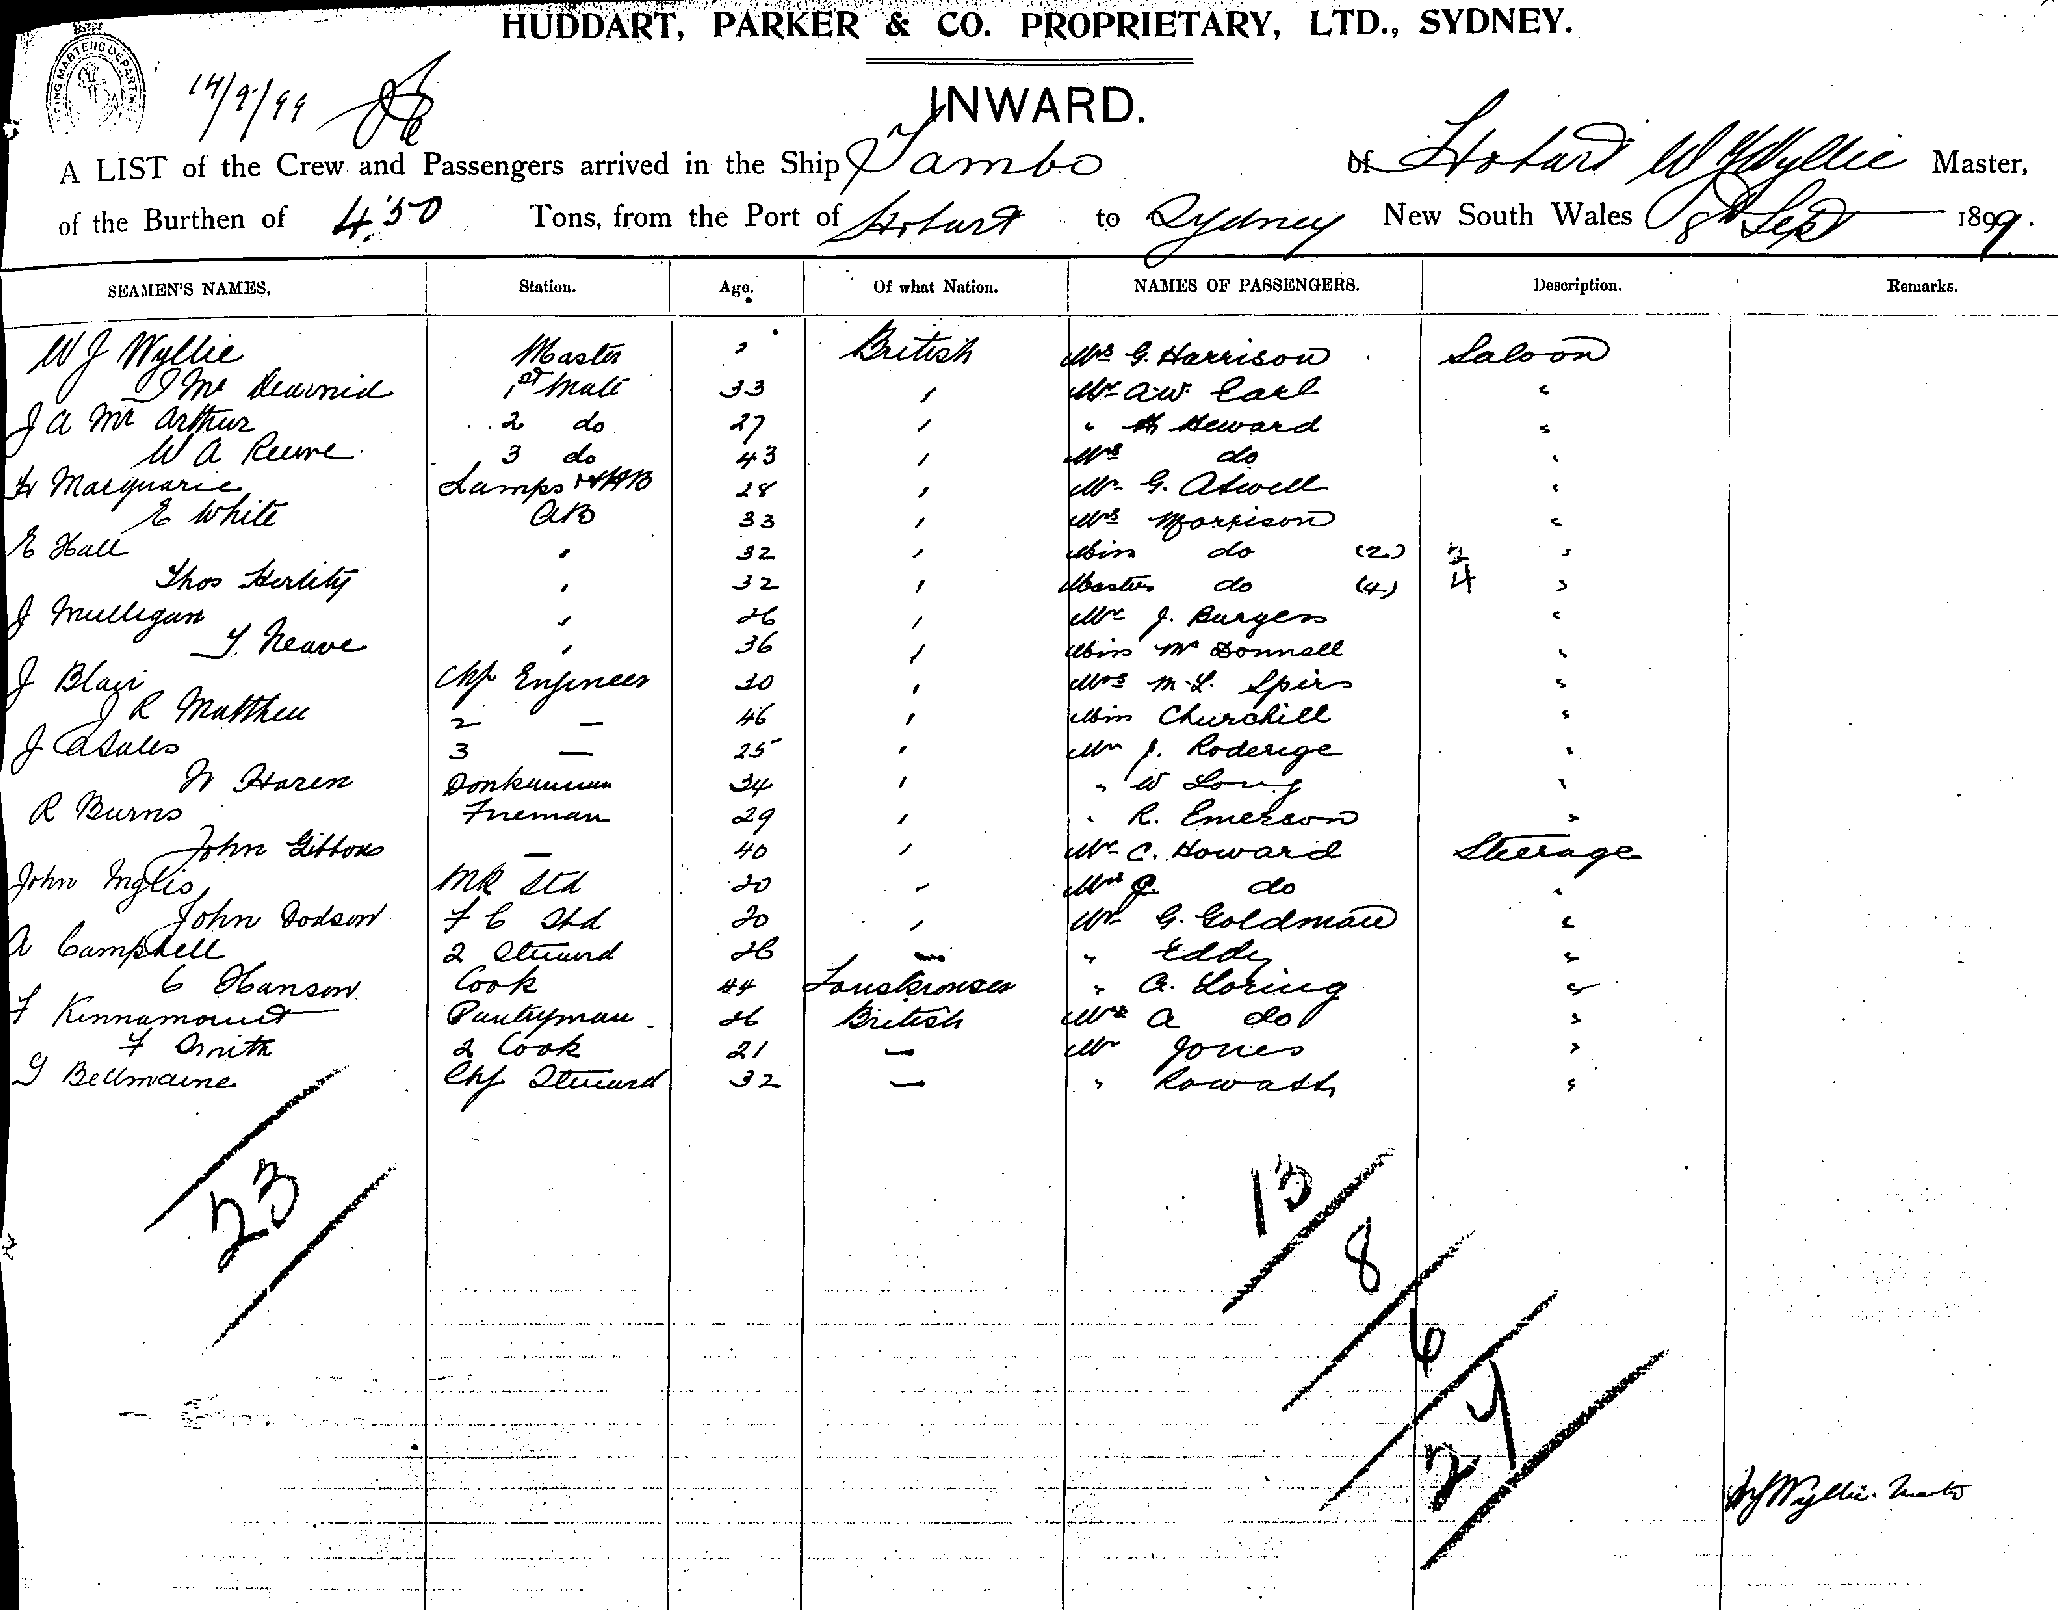 HUDDART, PARKER & CO. PROPRIETARY, LTD., SYDNEY.
14/9/99
INWARD.
A LIST of the Crew and Passengers arrived in the Ship Tambo of Hobart W J Wyllie Master,
of the Burthen of 450 Tons, from the Port of Hobart to Sydney New South Wales 8th Sept 1899.
SEAMEN'S NAMES, Station. Age. Of what Nation. NAMES OF PASSENGERS. Description. Remarks.
W J Wyllie Master British Mrs G. Harrison Saloon
1st Mate 33 " Mr A.W. Earl "
J A Mc Arthur 2 do 27 " " Heward "
W A Reeve 3 do 43 " Mrs do "
Macquarie Lamps & AB 28 " Mr G. Atwell "
E White AB 33 " Mrs Morrison "
E Hall " 32 " Miss do (2) 2 "
Thos Herlity " 32 " Masters do (4) 4 "
J Mulligan " 26 " Mr J. Burgess "
T. Neave " 36 " Miss Mc Donnall "
J Blair Chf Engineer 30 " Mrs M. L. Spirs "
J R Matthew 2 — 46 " Miss Churchill "
J 3 — 25 " Mr J. Roderige "
W Haren Donkeyman 34 " " W Long "
R Burns Fireman 29 " " R. Emerson "
John Gibbons — 40 " Mr C. Howard Steerage
John Inglis MR Std 20 " Mrs C do "
John Dodson F C Std 20 " Mr G. Goldman "
A Campbell 2 Steward 26 " " Eddy "
C Hanson Cook 44 " A. Loring "
F Kinnamount Pantryman 26 British Mrs A do "
F Smith 2 Cook 21 — Mr Jones "
G Bellmaine Chf Steward 32 — " Rowath "
23
13
8
6
27
W J Wyllie. Master